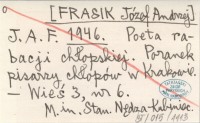 [FRASIK Józef Andrzej]
J.A.F. 1946. Poeta ra-
bacji chłopskiej. Poranek
pisarzy chłopów w Krakowie.
– Wieś 3, nr 6.
M.in. Stan. Nędza-Kubiniec.